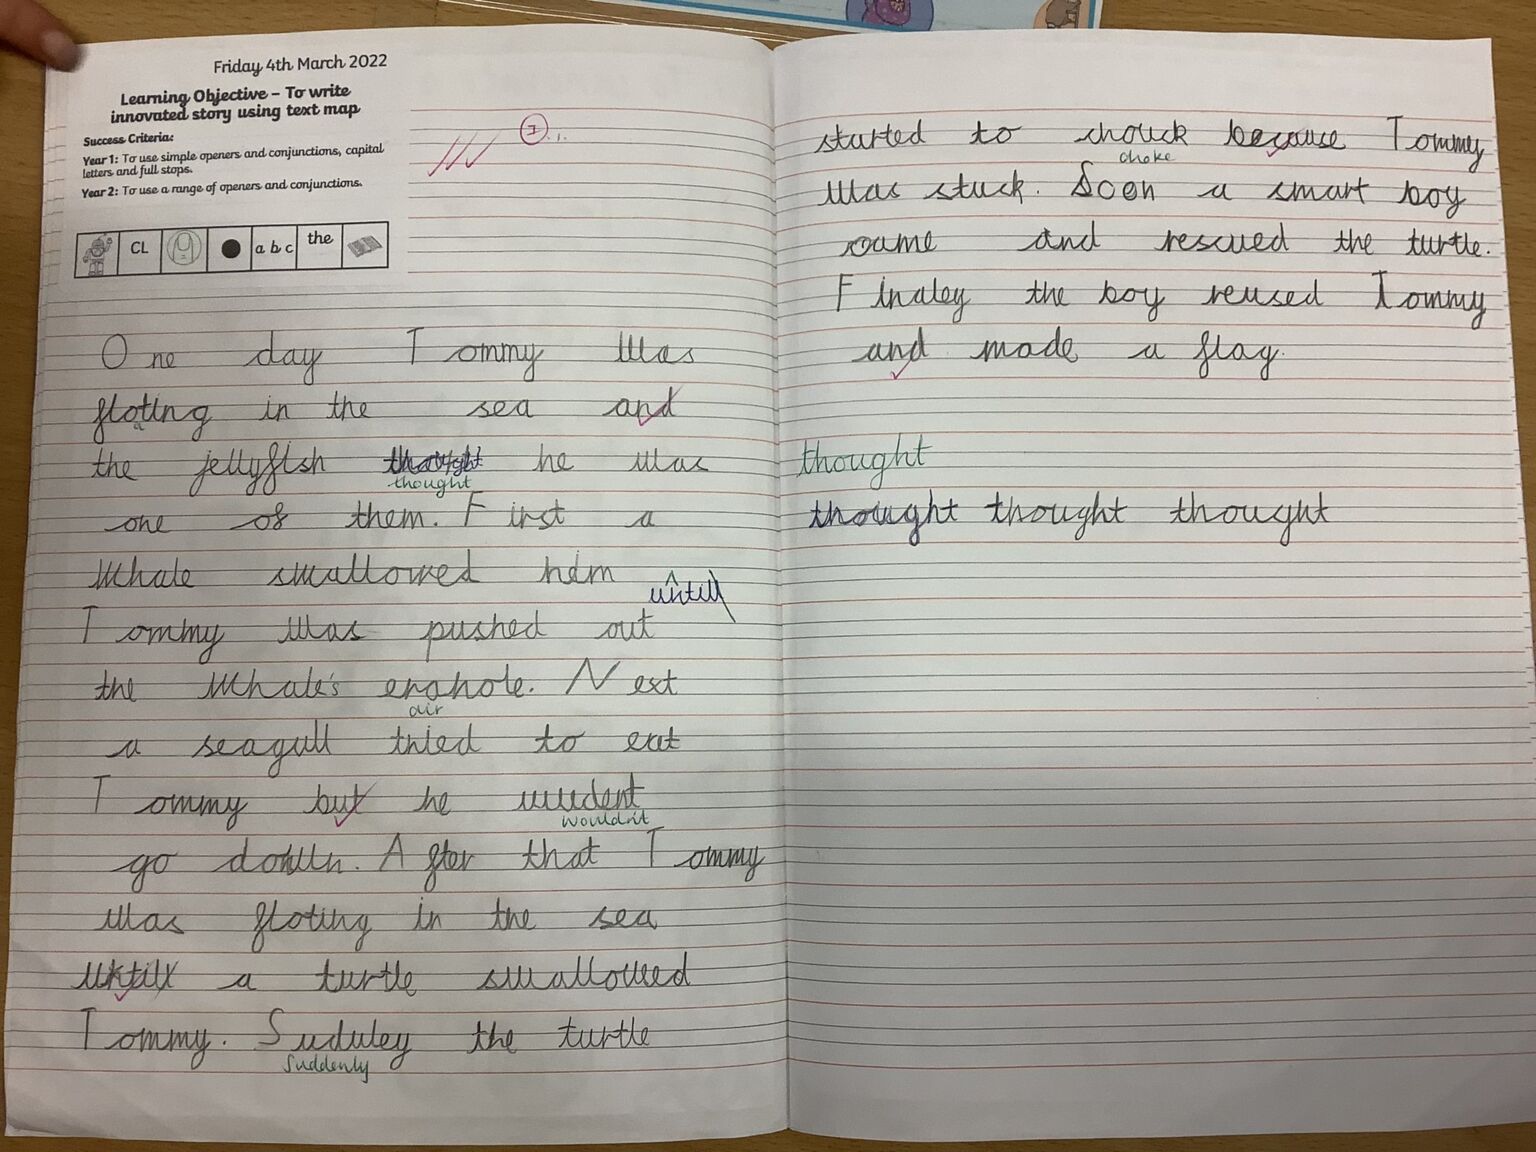 Friday 4th March 2022
Learning Objective – To write
innovated story using text map
Success Criteria:
Year 1: To use simple openers and conjunctions, capital
letters and full stops.
Year 2: To use a range of openers and conjunctions.
CL a b c the
I
One day Tommy was
floting in the sea and
a
the jellyfish thought he was
thought
one of them. First a
Whale swallowed him
untill
Tommy was pushed out
the Whale's erahole. Next
air
a seagull tried to eat
Tommy but he wudent
wouldn't
go down. After that Tommy
was floting in the sea
untill a turtle swallowed
Tommy. Suduley the turtle
Suddenly
started to chouck because Tommy
choke
was stuck. Soon a smart boy
came and rescued the turtle.
Finaley the boy reused Tommy
and made a flag.
thought
thought thought thought